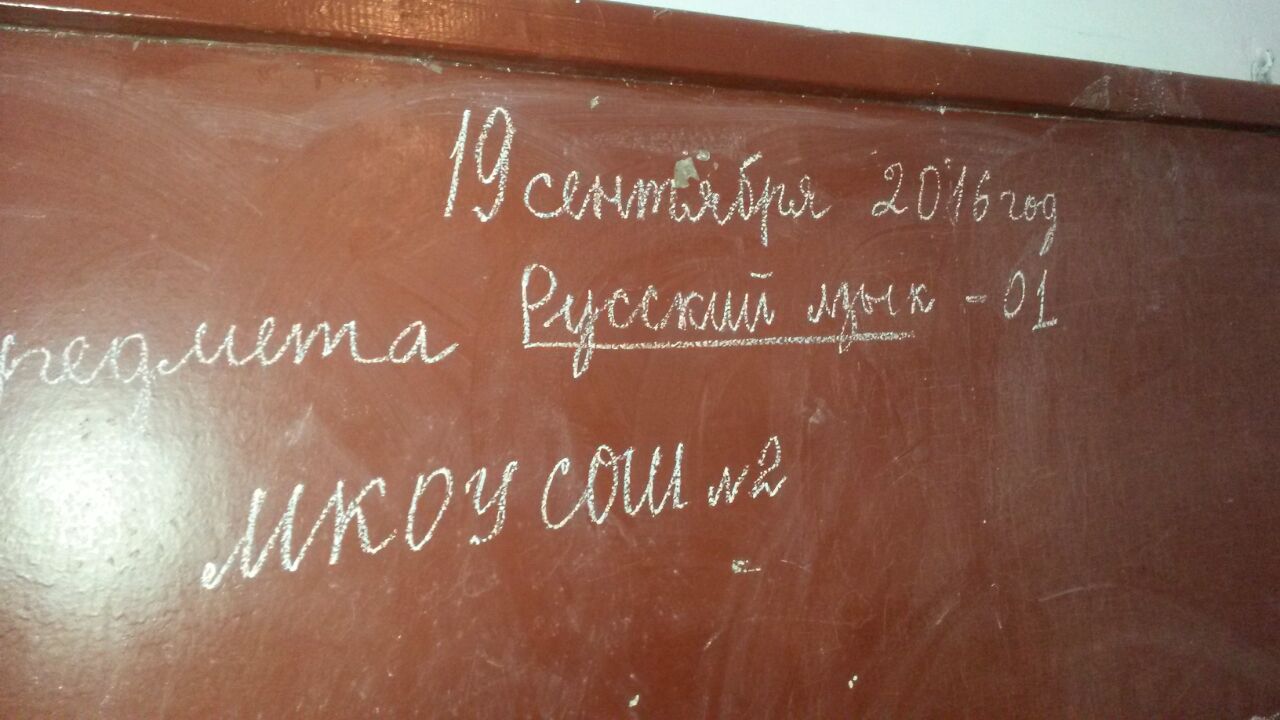 19 сентября 2016 год
предмета Русский язык - 01
МКОУ СОШ №2